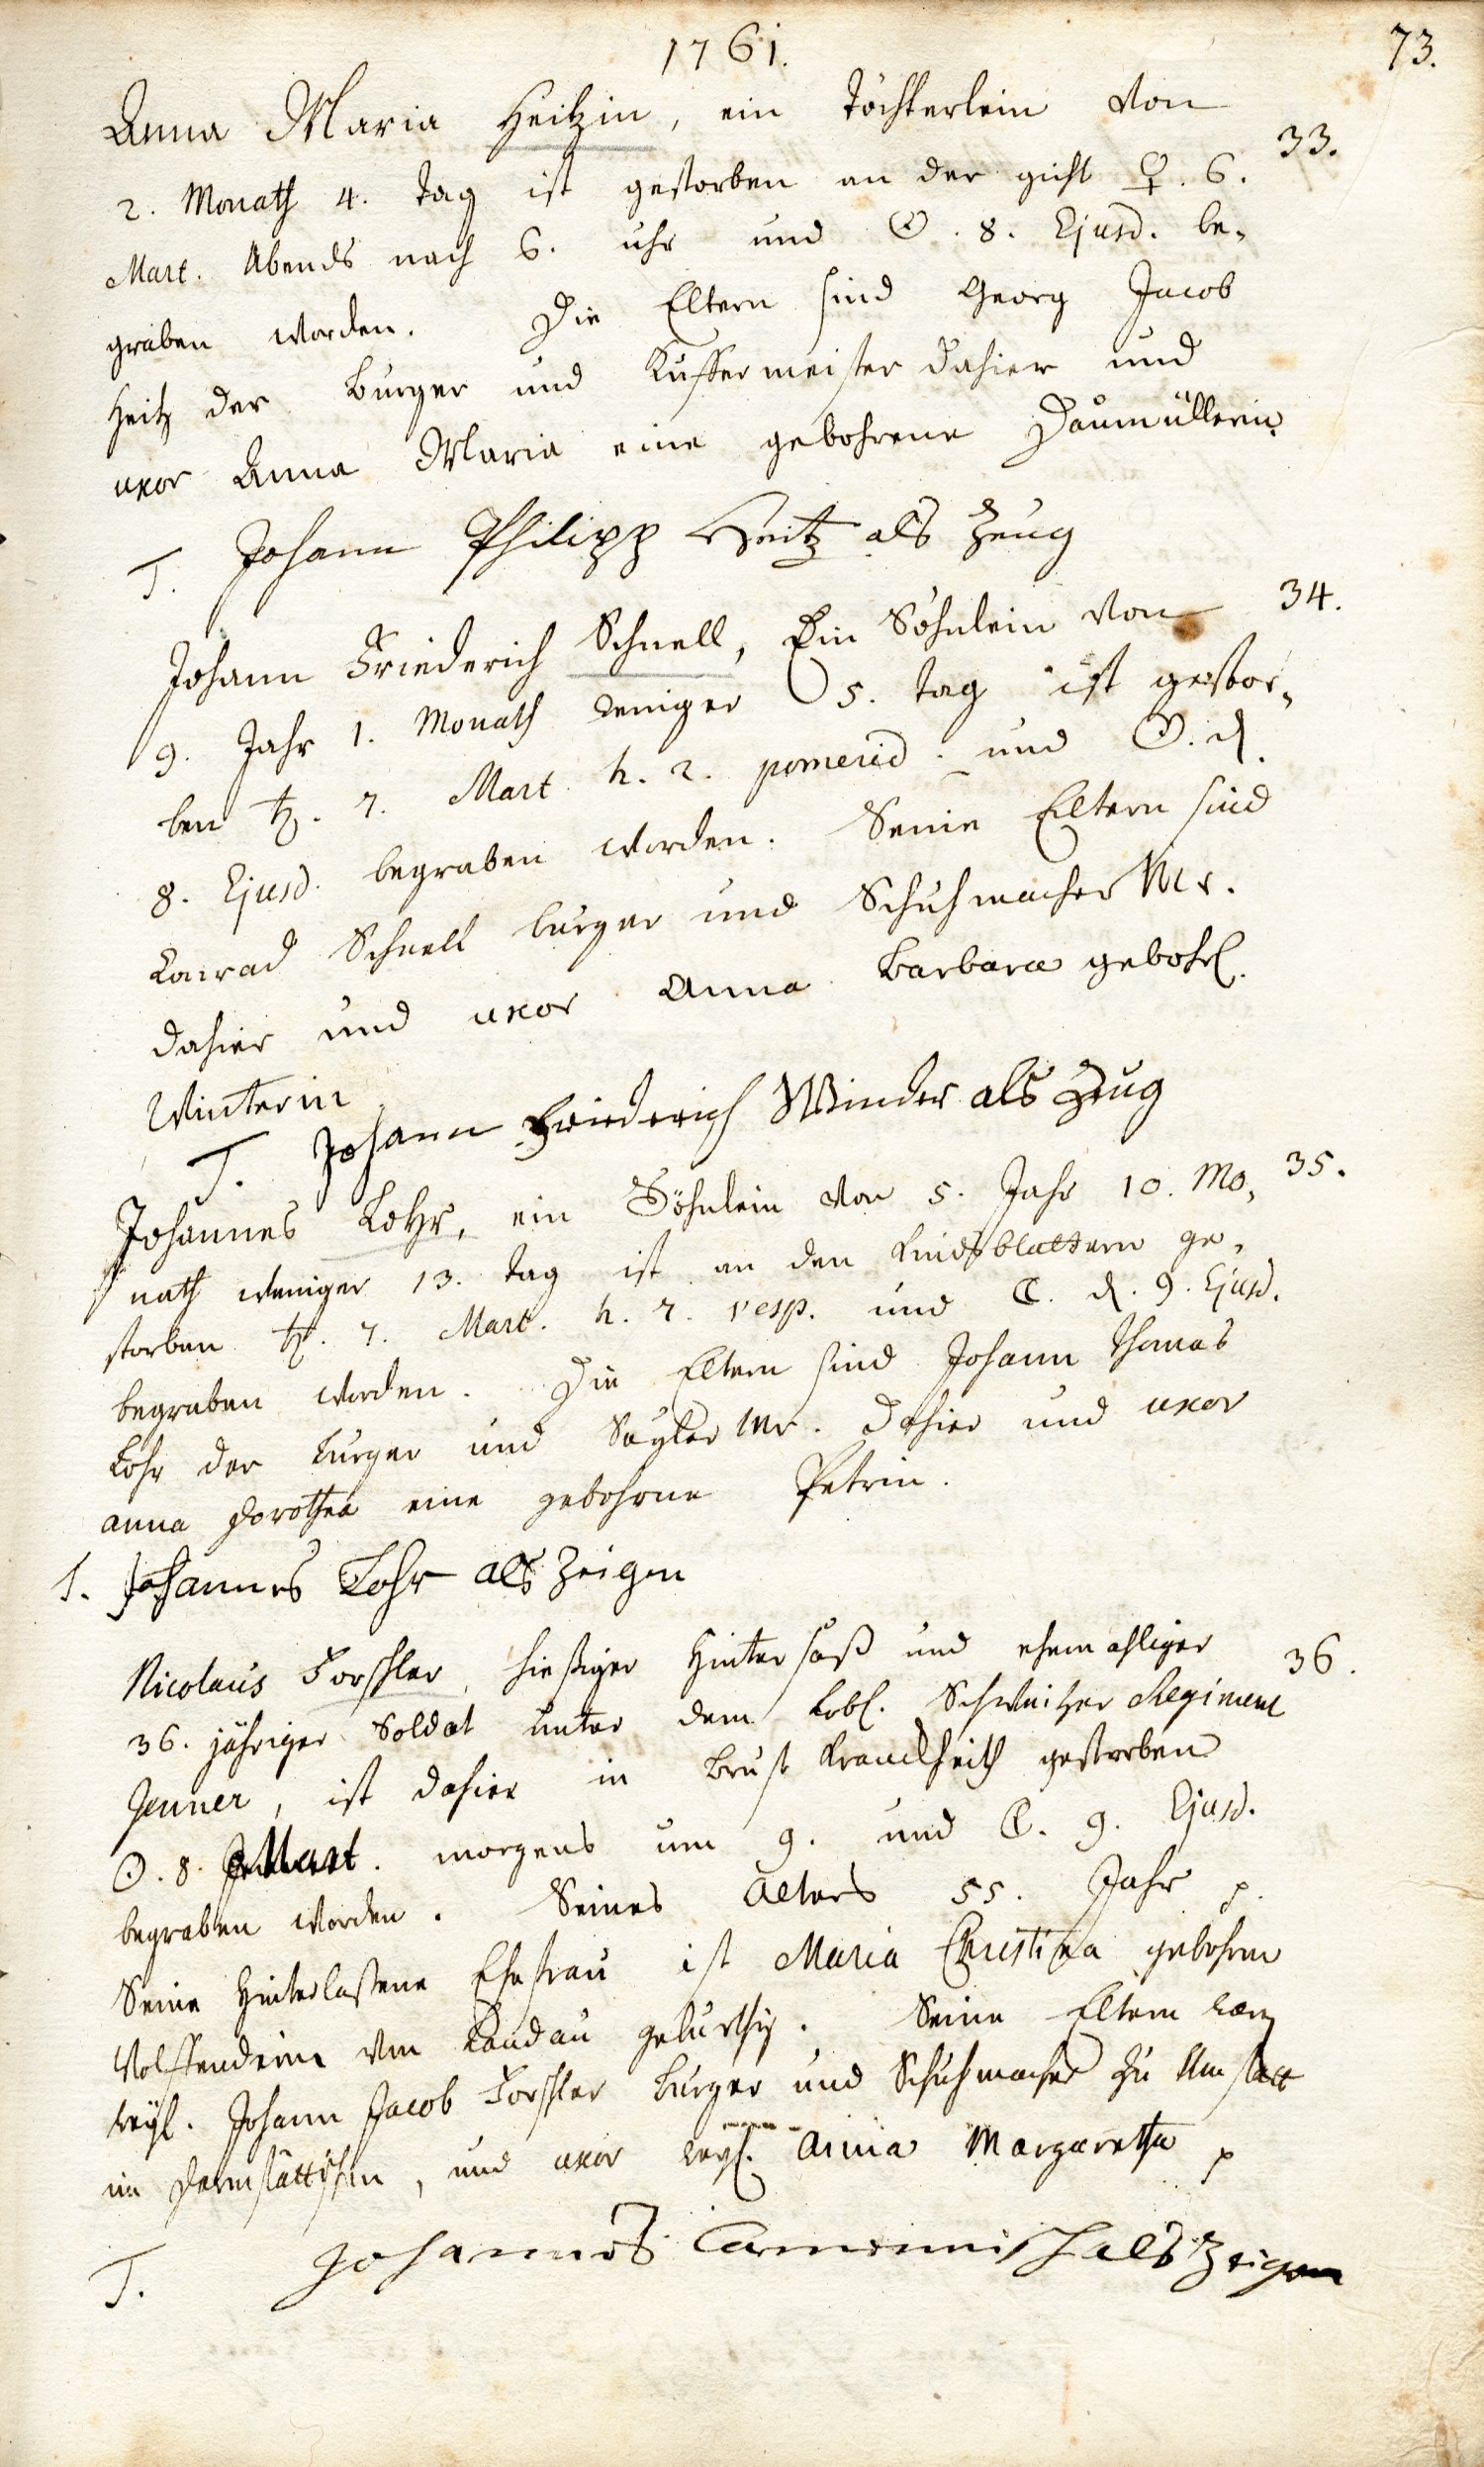 1761.
73.
Anna Maria Heitzin, ein Töchterlein von
33.
2. Monath 4. tag ist gestorben an der gicht ♀. 6.
Mart. Abends nach 6. uhr und ☉. 8. Ejusd. be-
graben worden. Die Eltern sind Georg Jacob
Heitz der Burger und Kuffermeister dahier und
uxor Anna Maria eine gebohrene Daumüllerin.
T. Johann Philipp Heitz als Zeug
Johann Friederich Schnell, Ein Söhnlein von
34.
9. Jahr 1. Monath weniger 5. tag ist gestor-
ben ♄. 7. Mart. h. 2. pomerid. und ☉. d.
8. Ejusd. begraben worden. Seine Eltern sind
Conrad Schnell burger und Schuhmacher Mr.
dahier und uxor Anna Barbara gebohr.
Winterin
T. Johann Friederich Winder als Zeug
Johannes Lohr, ein Söhnlein von 5. Jahr 10. Mo-
35.
nath weniger 13. tag ist an den Kindsblattern ge-
storben ♄. 7. Mart. h. 7. vesp. und ☾. d. 9. Ejusd.
begraben worden. Die Eltern sind Johann Thomas
Lohr der burger und Sayler Mr. dahier und uxor
anna Dorothea eine gebohrne Petrin.
T. Johannes Lohr als Zeigen
Nicolaus Forschler, hießiger Hintersaß und ehemahliger
36.
36. jähriger Soldat unter dem Löbl. Schweitzer Regiment
Jenner, ist dahier in Brust Kranckheith gestorben
☉. 8. Mart. morgens um 9. und ☾. 9. Ejusd.
begraben worden. Seines Alters 55. Jahr p.
Seine Hinterlaßene Ehefrau ist Maria Christina gebohrne
Wolffenderin von Landau gebürthig. Seine Eltern waren
weyl. Johann Jacob Forschler Burger und Schuhmacher zu Umstatt
im Dermstättischen, und uxor weyl. Anna Margaretha p
T. Johannes als Zeigen